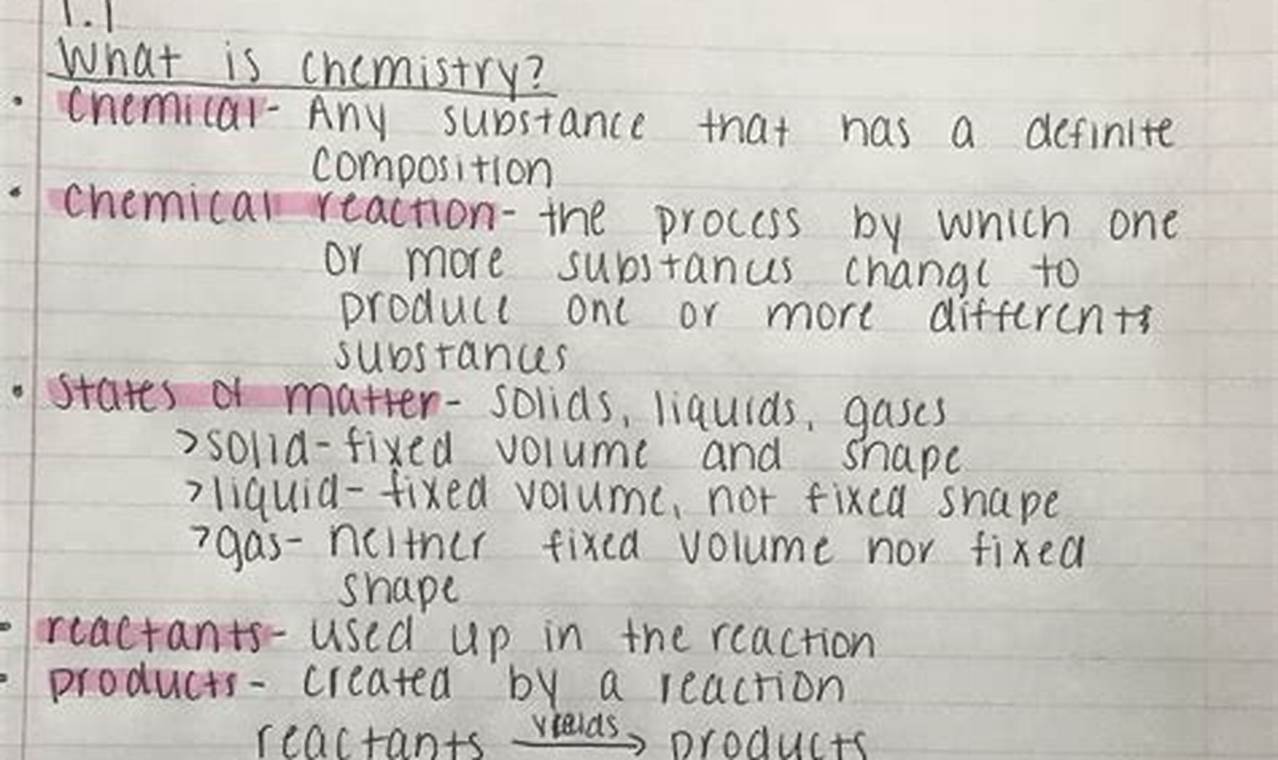 1.1
What is chemistry?
• Chemical- Any substance that has a definite
composition
• Chemical reaction- the process by which one
or more substances change to
produce one or more differents
substances
• States of matter- solids, liquids, gases
>solid- fixed volume and shape
>liquid- fixed volume, not fixed shape
>gas- neither fixed volume nor fixed
shape
• reactants- used up in the reaction
• products- created by a reaction
yields
reactants → products